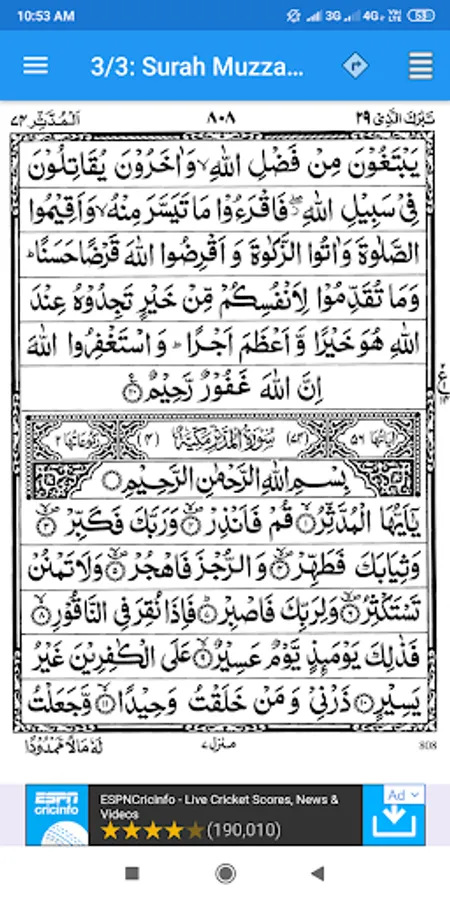 10:53 AM 3G 4G VoI LTE 53
3/3: Surah Muzza...
تَبٰرَكَ الَّذِیْ ۲۹ ۸۰۸ اَلْمُدَّثِّر ۷۴
یَبْتَغُوْنَ مِنْ فَضْلِ اللّٰهِ ۙ وَاٰخَرُوْنَ یُقَاتِلُوْنَ
فِیْ سَبِیْلِ اللّٰهِ ۖ فَاقْرَءُوْا مَا تَیَسَّرَ مِنْهُ ۙ وَاَقِیْمُوا
الصَّلٰوةَ وَاٰتُوا الزَّكٰوةَ وَ اَقْرِضُوا اللّٰهَ قَرْضًا حَسَنًا ؕ
وَمَا تُقَدِّمُوْا لِاَنْفُسِكُمْ مِّنْ خَیْرٍ تَجِدُوْهُ عِنْدَ
اللّٰهِ هُوَ خَیْرًا وَّ اَعْظَمَ اَجْرًا ؕ وَ اسْتَغْفِرُوا اللّٰهَ
اِنَّ اللّٰهَ غَفُوْرٌ رَّحِیْمٌ ۲۰
اٰیَاتُهَا ۵۶ (۷۴) سُوْرَةُ الْمُدَّثِّرِ مَكِّیَّةٌ (۴) رُكُوْعَاتُهَا ۲
بِسْمِ اللّٰهِ الرَّحْمٰنِ الرَّحِیْمِ
یٰۤاَیُّهَا الْمُدَّثِّرُ ۱ قُمْ فَاَنْذِرْ ۲ وَرَبَّكَ فَكَبِّرْ ۳
وَثِیَابَكَ فَطَهِّرْ ۴ وَ الرُّجْزَ فَاهْجُرْ ۵ وَلَا تَمْنُنْ
تَسْتَكْثِرُ ۶ وَلِرَبِّكَ فَاصْبِرْ ۷ فَاِذَا نُقِرَ فِی النَّاقُوْرِ ۸
فَذٰلِكَ یَوْمَئِذٍ یَّوْمٌ عَسِیْرٌ ۹ عَلَی الْكٰفِرِیْنَ غَیْرُ
یَسِیْرٍ ۱۰ ذَرْنِیْ وَ مَنْ خَلَقْتُ وَحِیْدًا ۱۱ وَّجَعَلْتُ
808 منزل ۷ لَهٗ مَالًا مَّمْدُوْدًا
ESPN cricinfo
ESPNCricinfo - Live Cricket Scores, News & Videos
(190,010)
Ad